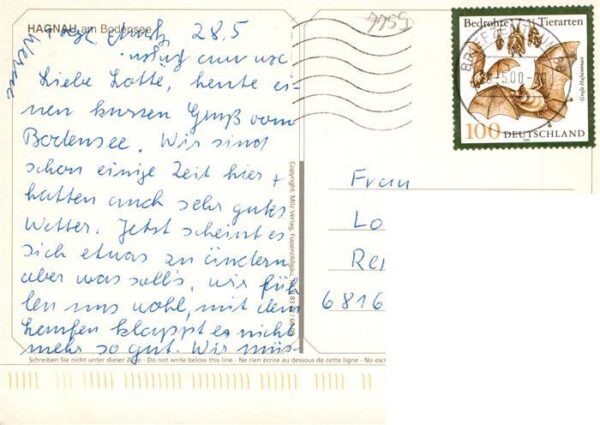 HAGNAU am Bodensee
28.5
Werner
Liebe Lotte, heute ei-
nen kurzen Gruß vom
Bodensee. Wir sind
schon einige Zeit hier +
hatten auch sehr gutes
Wetter. Jetzt scheint es
sich etwas zu ändern
aber was soll's, wir füh
len uns wohl, mit dem
laufen klappt es nicht
mehr so gut. Wir müs-
Schreiben Sie nicht unter dieser Zeile - Do not write below this line - Ne rien écrire au dessous de cette ligne - No escr
Copyright: Milz Verlag, Füssen/Allgäu,
4455
Bedrohte Tierarten
BRIEFZENTRUM 88
5.00
Große Hufeisennase
100 DEUTSCHLAND
Frau
Lo
Re
6816